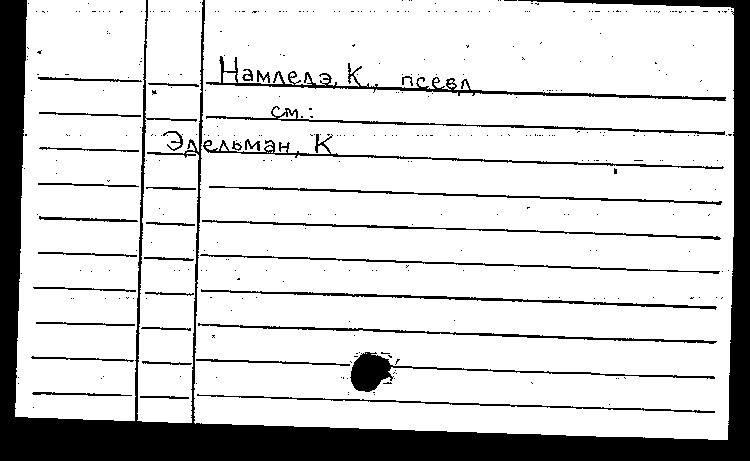 Намледэ, К., псевд.
см.:
Эдельман, К.